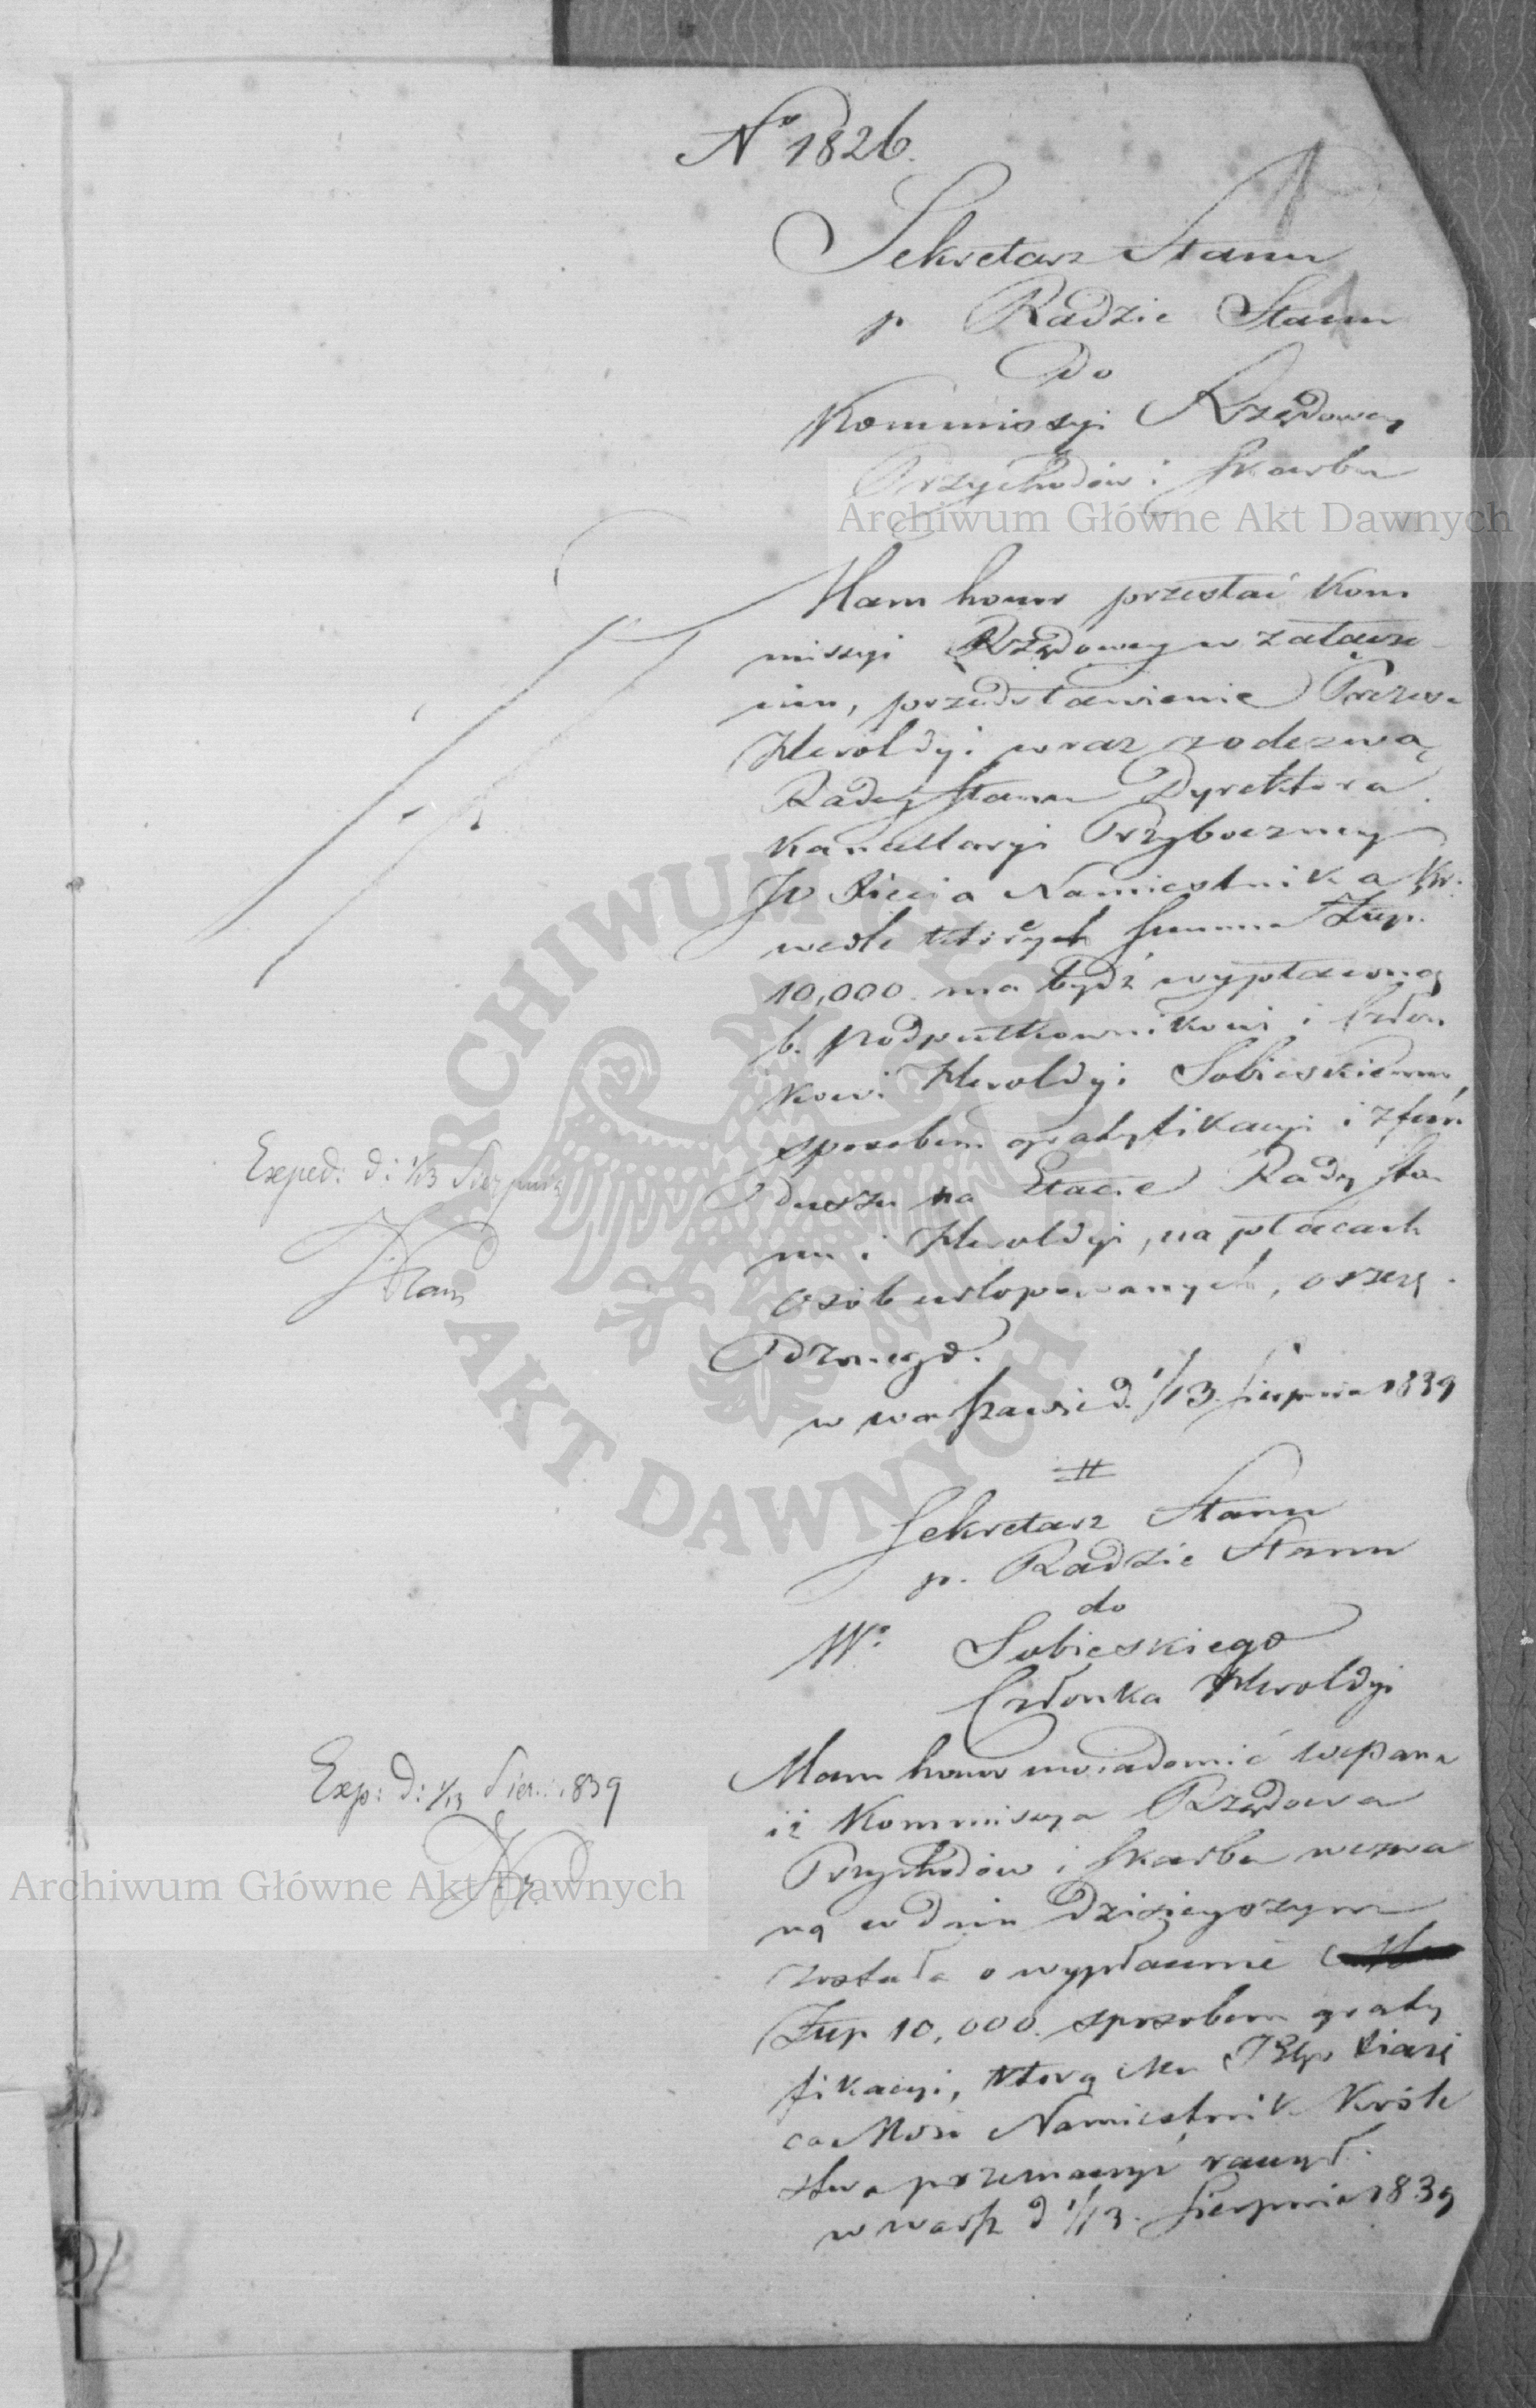 No 1826.
Sekretarz Stanu
p. Radzie Stanu
do
Kommissyi Rządowey
Przychodów i Skarbu
Archiwum Główne Akt Dawnych
Mam honor przesłać Kom
missyi Rządowey w załatwie
niu, przedstawienie Prezesa
Heroldyi wraz z odezwą
Radcy Stanu Dyrektora
Kancellaryi Przyboczney
JO Xięcia Namiestnika Kr.
wedle których summa Złp.
10,000 ma bydź wypłaconą
b. podpułkownikowi i Człon
kowi Heroldyi Sobieskiemu,
sposobem gratyfikacyi i z fun
duszu na Etacie Rady Sta
nu i Heroldyi, na płacach
osób urlopowanych, oszczę
dzonego.
w Warszawie d. 1/13 Sierpnia 1839
Exped: d: 1/13 Sierpnia
ARCHIWUM GŁÓWNE
AKT DAWNYCH
Sekretarz Stanu
p. Radzie Stanu
do
Wo Sobieskiego
Członka Heroldyi
Exp: d: 1/13 Sier: 1839
Mam honor uwiadomić WcPana
iż Kommissya Rządowa
Przychodów i Skarbu wezwa
ną w dniu dzisieyszym
została o wypłacenie
Złp 10,000. sposobem graty
fikacyi, którą Mu Xiążę
Namiestnik Króle
stwa przeznaczyć raczył.
w Warsz d 1/13. Sierpnia 1839
Archiwum Główne Akt Dawnych